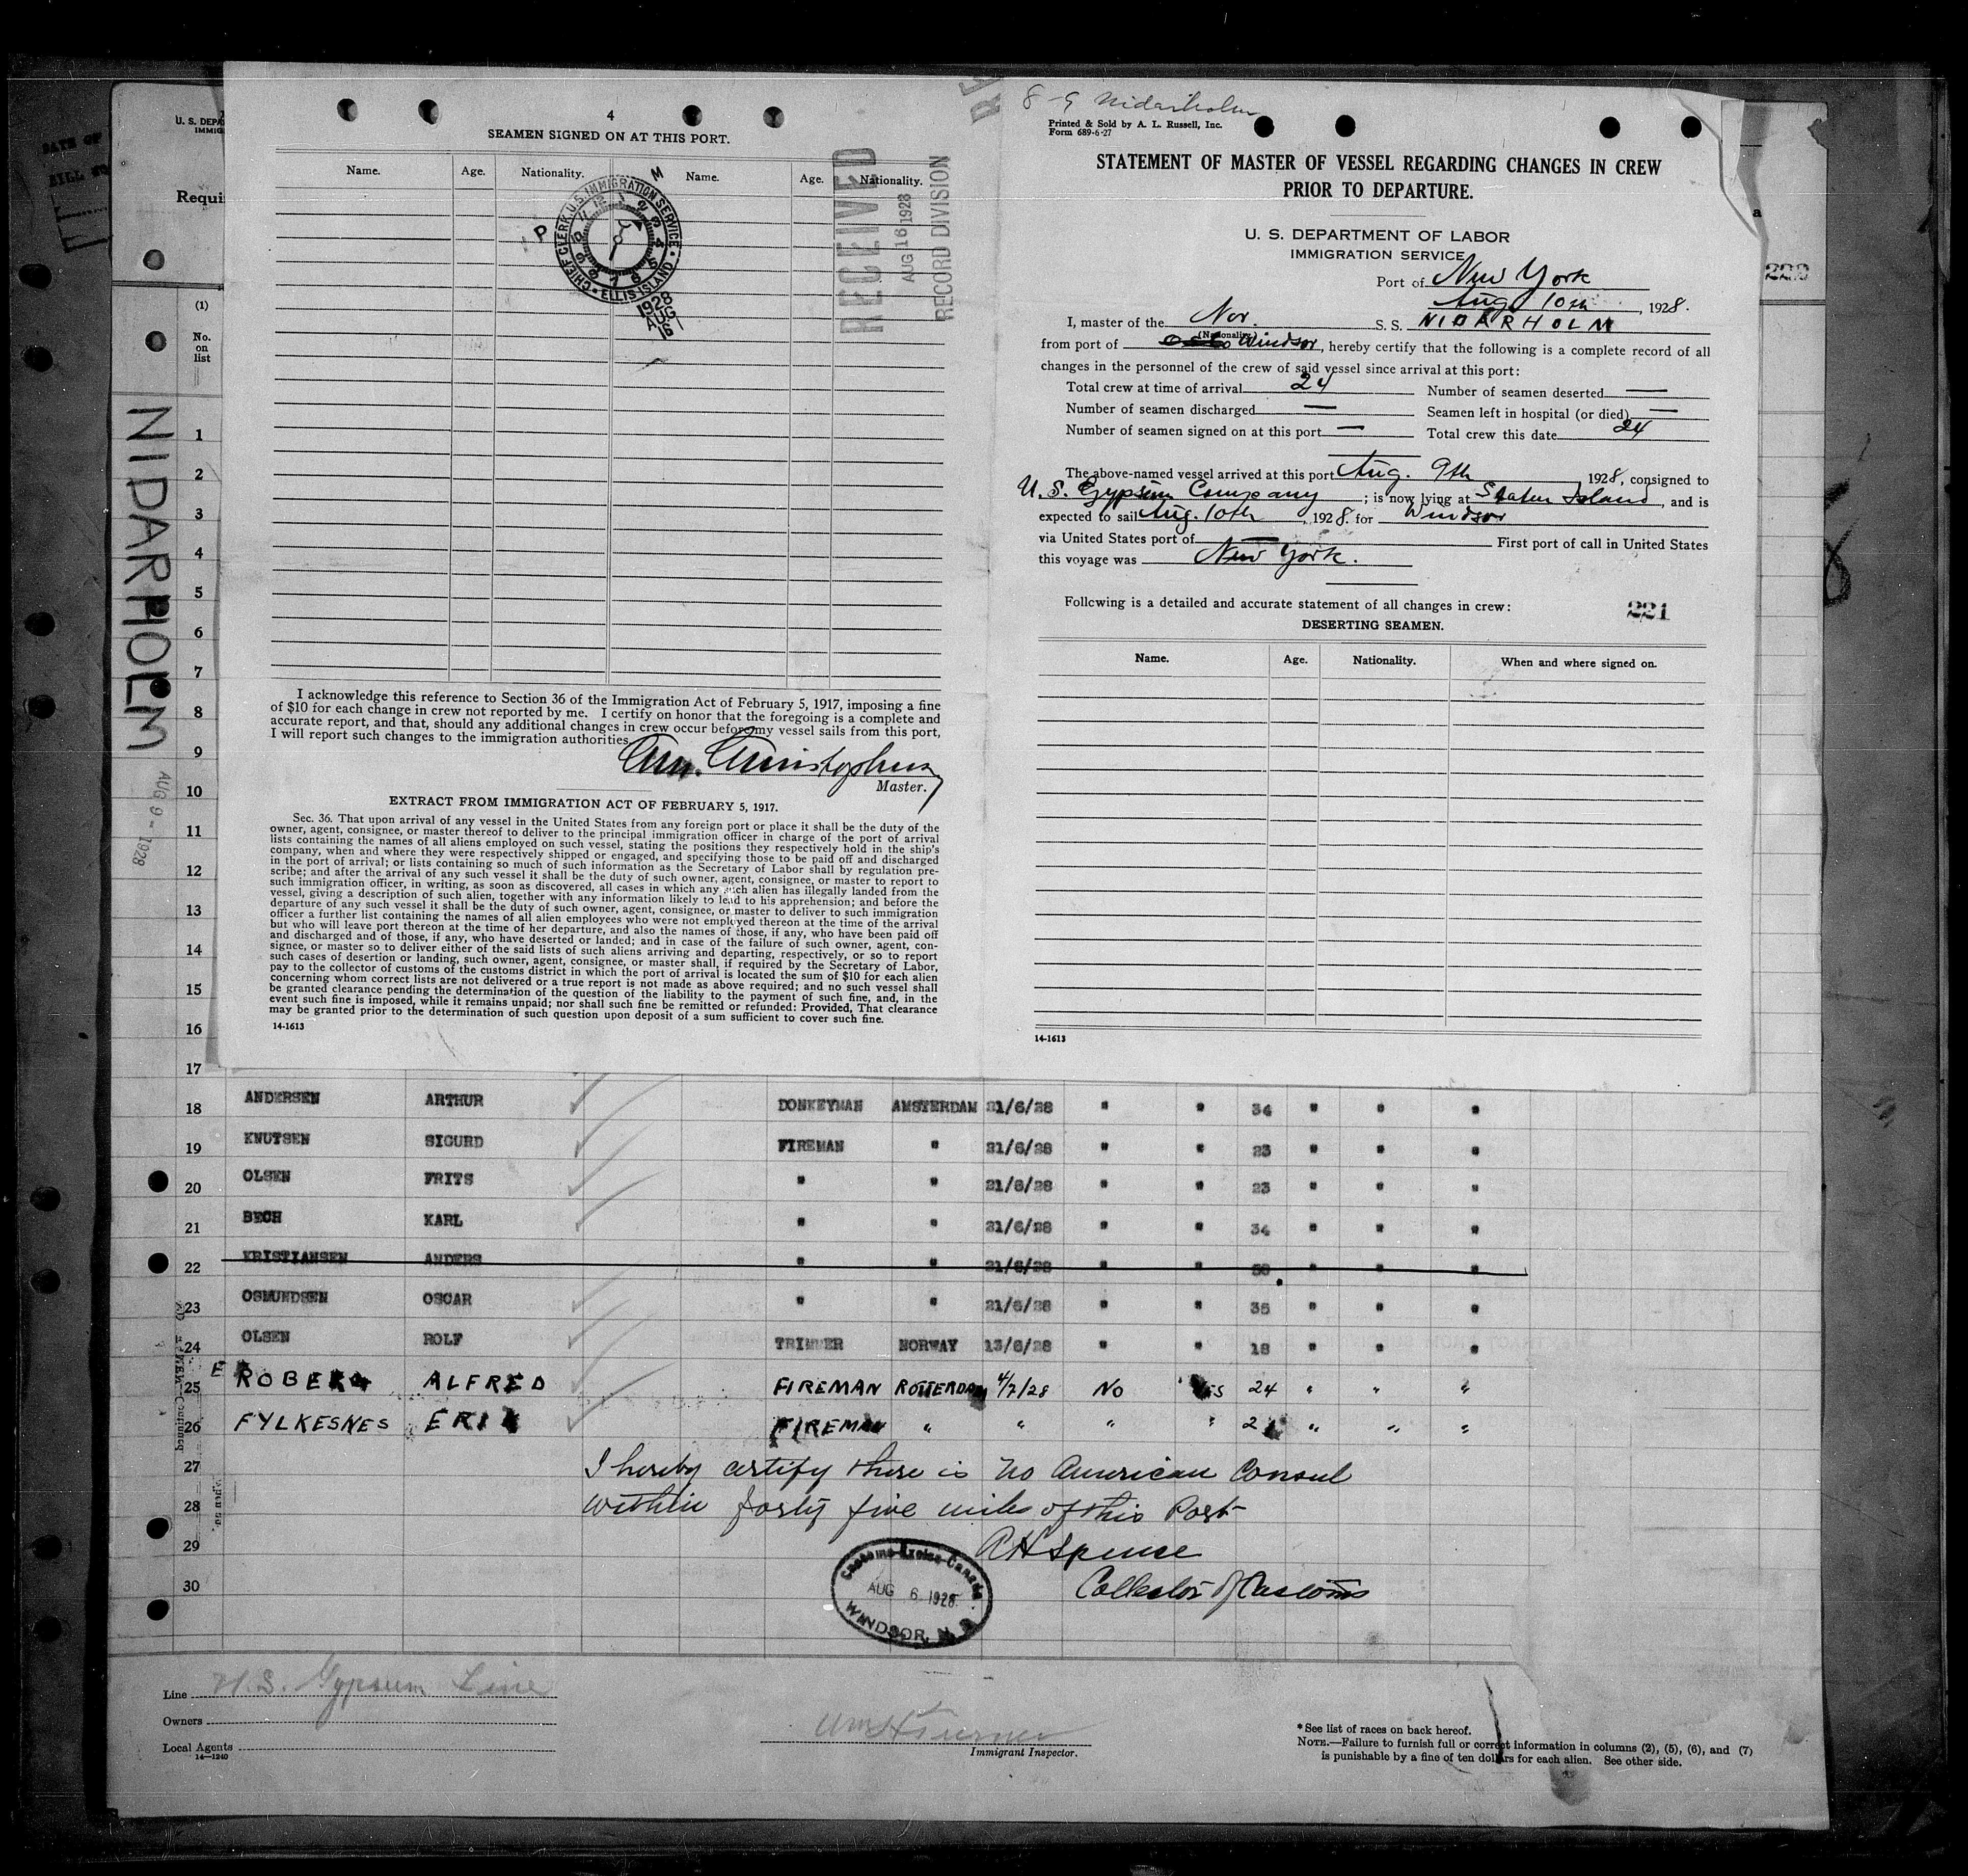 4
SEAMEN SIGNED ON AT THIS PORT.
Name. Age. Nationality. Name. Age. Nationality.
CHIEF CLERK, U.S. IMMIGRATION SERVICE
ELLIS ISLAND
P M
1928
RECEIVED
AUG 16 1928
RECORD DIVISION
I acknowledge this reference to Section 36 of the Immigration Act of February 5, 1917, imposing a fine
of $10 for each change in crew not reported by me. I certify on honor that the foregoing is a complete and
accurate report, and that, should any additional changes in crew occur before my vessel sails from this port,
I will report such changes to the immigration authorities.
Master.
EXTRACT FROM IMMIGRATION ACT OF FEBRUARY 5, 1917.
Sec. 36. That upon arrival of any vessel in the United States from any foreign port or place it shall be the duty of the
owner, agent, consignee, or master thereof to deliver to the principal immigration officer in charge of the port of arrival
lists containing the names of all aliens employed on such vessel, stating the positions they respectively hold in the ship's
company, when and where they were respectively shipped or engaged, and specifying those to be paid off and discharged
in the port of arrival; or lists containing so much of such information as the Secretary of Labor shall by regulation pre-
scribe; and after the arrival of any such vessel it shall be the duty of such owner, agent, consignee, or master to report to
such immigration officer, in writing, as soon as discovered, all cases in which any such alien has illegally landed from the
vessel, giving a description of such alien, together with any information likely to lead to his apprehension; and before the
departure of any such vessel it shall be the duty of such owner, agent, consignee, or master to deliver to such immigration
officer a further list containing the names of all alien employees who were not employed thereon at the time of the arrival
but who will leave port thereon at the time of her departure, and also the names of those, if any, who have been paid off
and discharged and of those, if any, who have deserted or landed; and in case of the failure of such owner, agent, con-
signee, or master so to deliver either of the said lists of such aliens arriving and departing, respectively, or so to report
such cases of desertion or landing, such owner, agent, consignee, or master shall, if required by the Secretary of Labor,
pay to the collector of customs of the customs district in which the port of arrival is located the sum of $10 for each alien
concerning whom correct lists are not delivered or a true report is not made as above required; and no such vessel shall
be granted clearance pending the determination of the question of the liability to the payment of such fine, and, in the
event such fine is imposed, while it remains unpaid; nor shall such fine be remitted or refunded: Provided, That clearance
may be granted prior to the determination of such question upon deposit of a sum sufficient to cover such fine.
14-1613
8-9 Nidarholm
Printed & Sold by A. L. Russell, Inc.
Form 689-6-27
STATEMENT OF MASTER OF VESSEL REGARDING CHANGES IN CREW
PRIOR TO DEPARTURE.
U. S. DEPARTMENT OF LABOR
IMMIGRATION SERVICE
Port of New York
Aug 10th, 1928.
I, master of the Nor. S. S. NIDARHOLM
(Nationality)
from port of Windsor, hereby certify that the following is a complete record of all
changes in the personnel of the crew of said vessel since arrival at this port:
Total crew at time of arrival 24 Number of seamen deserted —
Number of seamen discharged — Seamen left in hospital (or died) —
Number of seamen signed on at this port — Total crew this date 24
The above-named vessel arrived at this port Aug. 9th 1928, consigned to
U. S. Gypsum Company; is now lying at Staten Island, and is
expected to sail Aug. 10th, 1928. for Windsor
via United States port of — First port of call in United States
this voyage was New York.
Following is a detailed and accurate statement of all changes in crew:
221
DESERTING SEAMEN.
Name. Age. Nationality. When and where signed on.
14-1613
U. S. DEPA
IMMIG
Requi
(1)
No.
on
list
220
NIDARHOLM
AUG 9 - 1928
1
2
3
4
5
6
7
8
9
10
11
12
13
14
15
16
17
18 ANDERSEN ARTHUR DONKEYMAN AMSTERDAM 21/6/28 " " 34 " " "
19 KNUTSEN SIGURD FIREMAN " 21/6/28 " " 23 " " "
20 OLSEN FRITS " " 21/6/28 " " 23 " " "
21 BECH KARL " " 21/6/28 " " 34 " " "
22 KRISTIANSEN ANDERS " " 21/6/28 " " " " "
23 OSMUNDSEN OSCAR " " 21/6/28 " " 35 " " "
24 OLSEN ROLF TRIMMER NORWAY 13/6/28 " " 18 " " "
25 ALFRED FIREMAN ROTTERDAM 4/7/28 NO YES 24 " " "
26 FYLKESNES ERIK FIREMAN " " " " " " "
27
28
29
30
I hereby certify there is no American Consul
within forty five miles of this Port
Spence
Collector of Customs
Customs-Excise-Canada
AUG 6 1928
WINDSOR, N.S.
Line U.S. Gypsum Line
Owners
Local Agents
14-1240
Immigrant Inspector.
*See list of races on back hereof.
NOTE.—Failure to furnish full or correct information in columns (2), (5), (6), and (7)
is punishable by a fine of ten dollars for each alien. See other side.